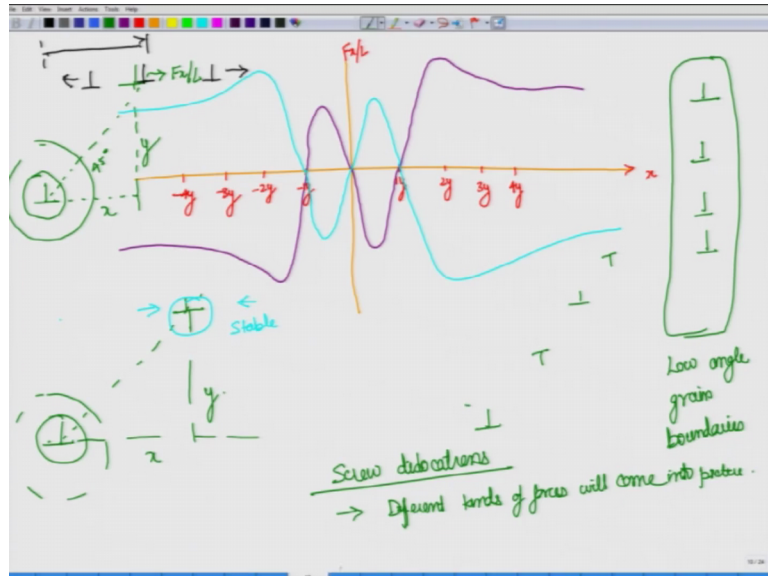 File Edit View Insert Actions Tools Help
Fx/L
→ Fx/L
y
45°
x
x
-4y
-3y
-2y
-y
1y
2y
3y
4y
Stable
y.
x
Low angle
grain
boundaries
Screw dislocations
→ Different kinds of forces will come into picture.